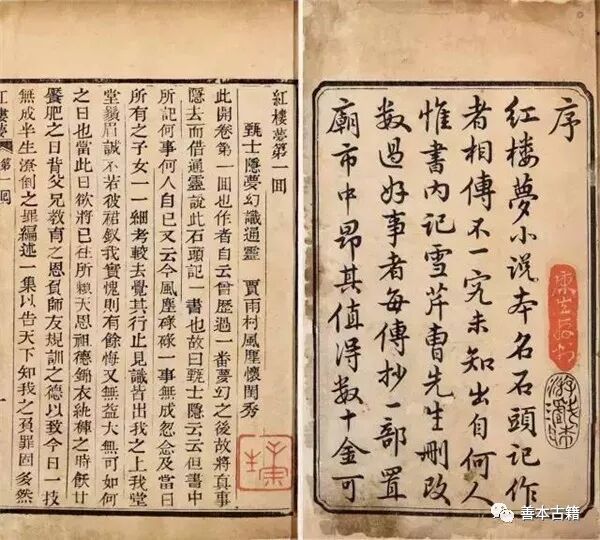 序
紅楼夢小説本名石頭記作
者相傳不一究未知出自何人
惟書内記雪芹曹先生刪改
数過好事者每傳抄一部置
廟市中昂其值得数十金可
紅樓夢第一回
甄士隱夢幻識通靈 賈雨村風塵懷閨秀
此開卷第一回也作者自云曾歷過一番夢幻之後故將真事
隱去而借通靈說此石頭記一書也故曰甄士隱云云但書中
所記何事何人自己又云今風塵碌碌一事無成忽念及當日
所有之子女一一細考較去覺其行止見識皆出我之上我堂
堂鬚眉誠不若彼裙釵我實愧則有餘悔又無益大無可如何
之日也當此日欲將已往所賴天恩祖德錦衣紈褲之時飫甘
饜肥之日背父兄教育之恩負師友規訓之德以致今日一技
無成半生潦倒之罪編述一集以告天下知我之負罪固多然
紅樓夢 第一回 一
善本古籍